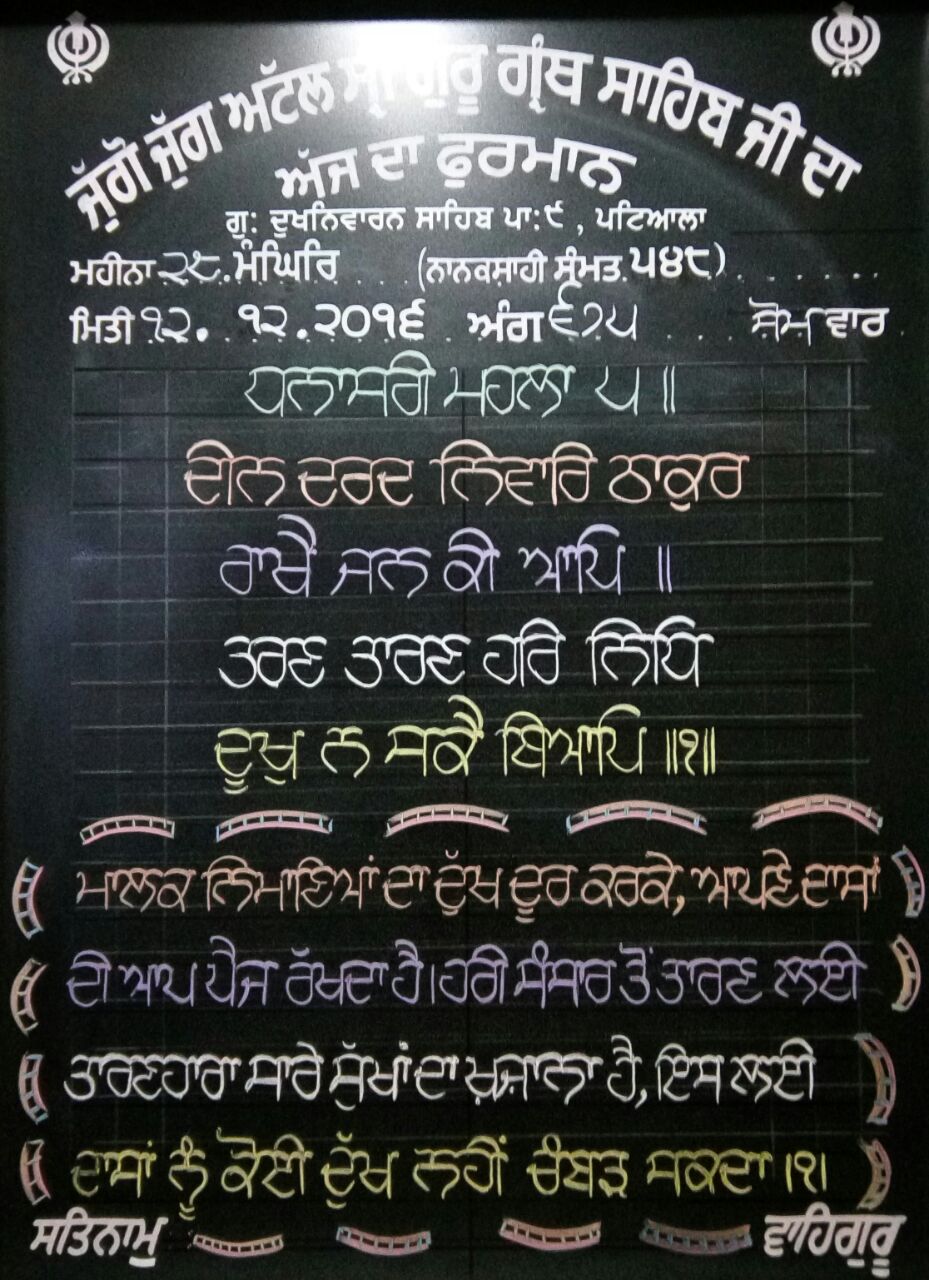 ਜੁੱਗੋ ਜੁੱਗ ਅੱਟਲ ਸ੍ਰੀ ਗੁਰੂ ਗ੍ਰੰਥ ਸਾਹਿਬ ਜੀ ਦਾ
ਅੱਜ ਦਾ ਫੁਰਮਾਨ
ਗੁ: ਦੂਖਨਿਵਾਰਨ ਸਾਹਿਬ ਪਾ:੯, ਪਟਿਆਲਾ
ਮਹੀਨਾ ੨੮. ਮੰਘਿਰਿ (ਨਾਨਕਸ਼ਾਹੀ ਸੰਮਤ ੫੪੮)
ਮਿਤੀ ੧੨. ੧੨. ੨੦੧੬ ਅੰਗ ੬੭੫ ਸੋਮਵਾਰ
ਧਨਾਸਰੀ ਮਹਲਾ ੫ ॥
ਦੀਨ ਦਰਦ ਨਿਵਾਰਿ ਠਾਕੁਰ
ਰਾਖੈ ਜਨ ਕੀ ਆਪਿ ॥
ਤਰਣ ਤਾਰਣ ਹਰਿ ਨਿਧਿ
ਦੂਖੁ ਨ ਸਕੈ ਬਿਆਪਿ ॥੧॥
ਮਾਲਕ ਨਿਮਾਣਿਆਂ ਦਾ ਦੁੱਖ ਦੂਰ ਕਰਕੇ, ਆਪਣੇ ਦਾਸਾਂ
ਦੀ ਆਪ ਪੈਜ ਰੱਖਦਾ ਹੈ। ਹਰੀ ਸੰਸਾਰ ਤੋਂ ਤਾਰਣ ਲਈ
ਤਾਰਣਹਾਰਾ ਸਾਰੇ ਸੁੱਖਾਂ ਦਾ ਖ਼ਜ਼ਾਨਾ ਹੈ, ਇਸ ਲਈ
ਦਾਸਾਂ ਨੂੰ ਕੋਈ ਦੁੱਖ ਨਹੀਂ ਚੰਬੜ ਸਕਦਾ ।੧।
ਸਤਿਨਾਮੁ ਵਾਹਿਗੁਰੂ